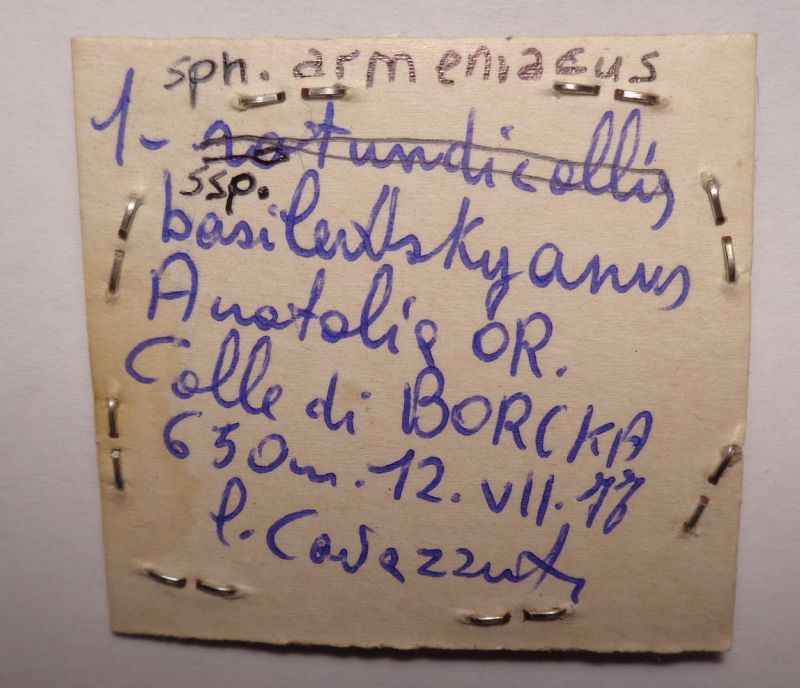 sph. armeniacus
1- rotundicollis
ssp.
basilewskyanus
Anatolia OR.
Colle di BORCKA
650m. 12. VII. 77
l. Cavazzuti